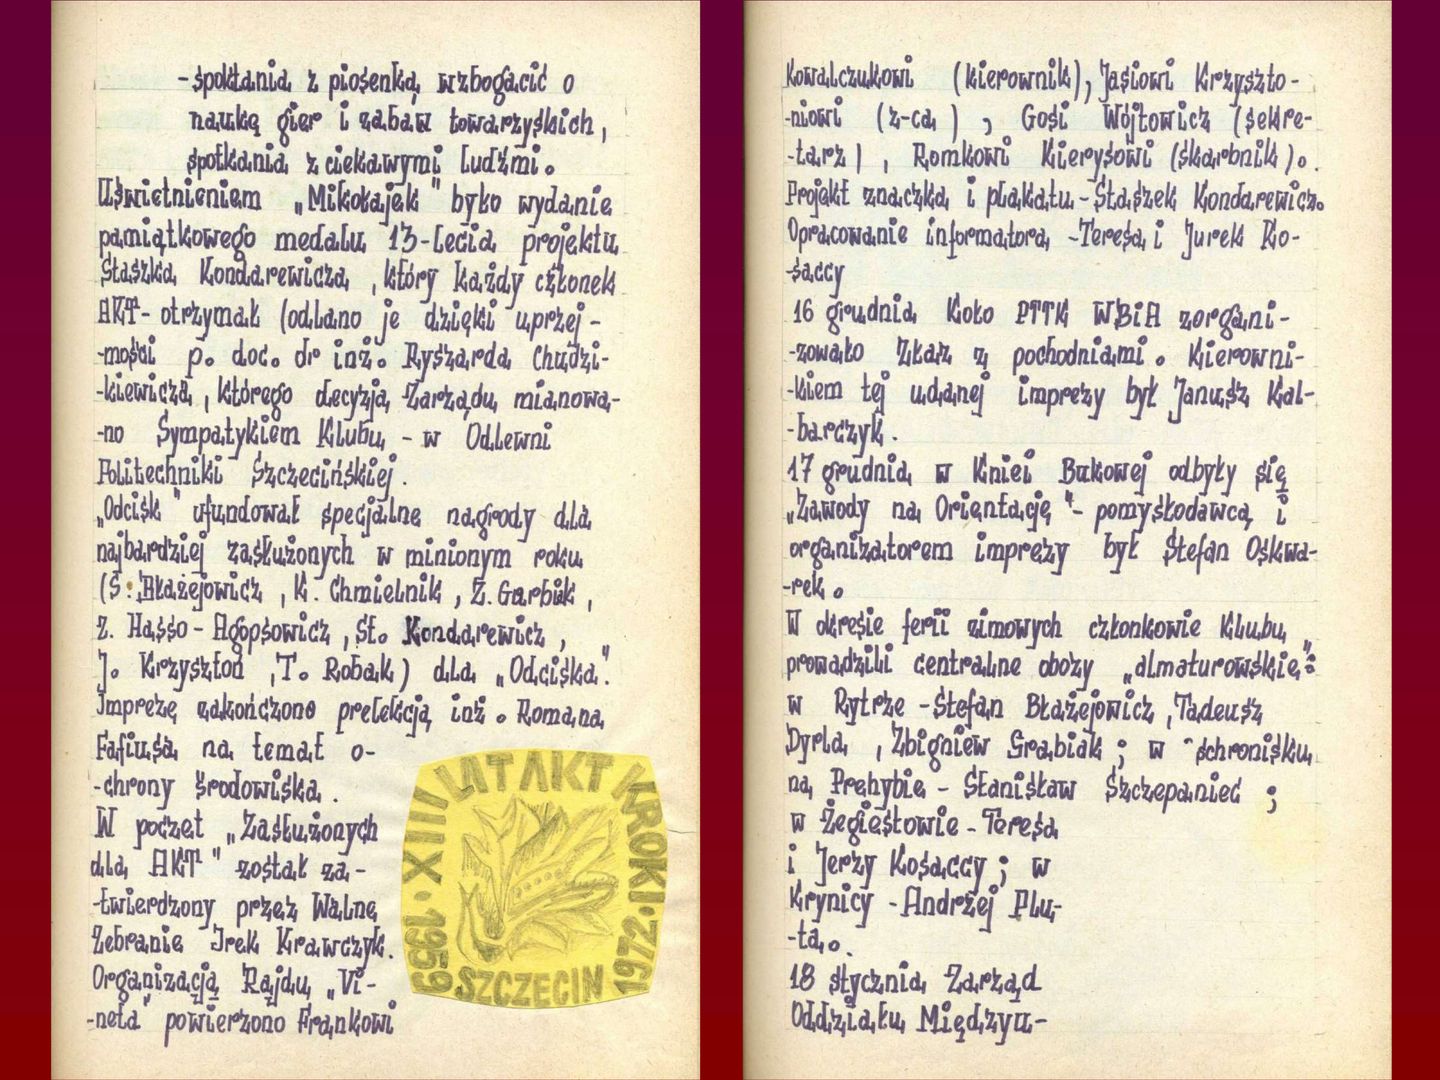 - spoktania z piosenką wzbogacić o
naukę gier i zabaw towarzyskich,
spotkania z ciekawymi ludźmi.
Uświetnieniem „Mikołajek" było wydanie
pamiątkowego medalu 13-lecia projektu
Staszka Kondarewicza, który każdy członek
AKT- otrzymał (odlano je dzięki uprzej-
-mości p. doc. dr inż. Ryszarda Chudzi-
-kiewicza, którego decyzją Zarządu mianowa-
-no Sympatykiem Klubu - w Odlewni
Politechniki Szczecińskiej.
„Odcisk" ufundował specjalne nagrody dla
najbardziej zasłużonych w minionym roku
(S. Błażejowicz, K. Chmielnik, Z. Garbuk,
Z. Hasso-Agopsowicz, St. Kondarewicz,
J. Krzysztoń, T. Robak) dla „Odciska".
Imprezę zakończono prelekcją inż. Romana
Fafiusa na temat o-
-chrony środowiska.
W poczet „Zasłużonych
dla AKT" został za-
-twierdzony przez Walne
Zebranie Irek Krawczyk.
Organizacją Rajdu „Vi-
-neta" powierzono Frankowi
XIII LAT AKT KROKI · 1972 · SZCZECIN 1959 ·
Kowalczukowi (kierownik), Jasiowi Krzyszto-
-niowi (z-ca), Gosi Wójtowicz (sekre-
-tarz), Romkowi Kierysowi (skarbnik).
Projekt znaczka i plakatu - Staszek Kondarewicz.
Opracowanie informatora - Teresa i Jurek Ko-
-saccy
16 grudnia Koło PTTK WBiA zorgani-
-zowało Złaz z pochodniami. Kierowni-
-kiem tej udanej imprezy był Janusz Kal-
-barczyk.
17 grudnia w Kniei Bukowej odbyły się
„Zawody na Orientację" - pomysłodawcą i
organizatorem imprezy był Stefan Oskwa-
-rek.
W okresie ferii zimowych członkowie Klubu
prowadzili centralne obozy „almaturowskie":
w Rytrze - Stefan Błażejowicz, Tadeusz
Dyrla, Zbigniew Grabiak; w schronisku
na Prehybie - Stanisław Szczepanieć;
w Żegiestowie - Teresa
i Jerzy Kosaccy; w
Krynicy - Andrzej Plu-
-ta.
18 stycznia Zarząd
Oddziału Międzyu-